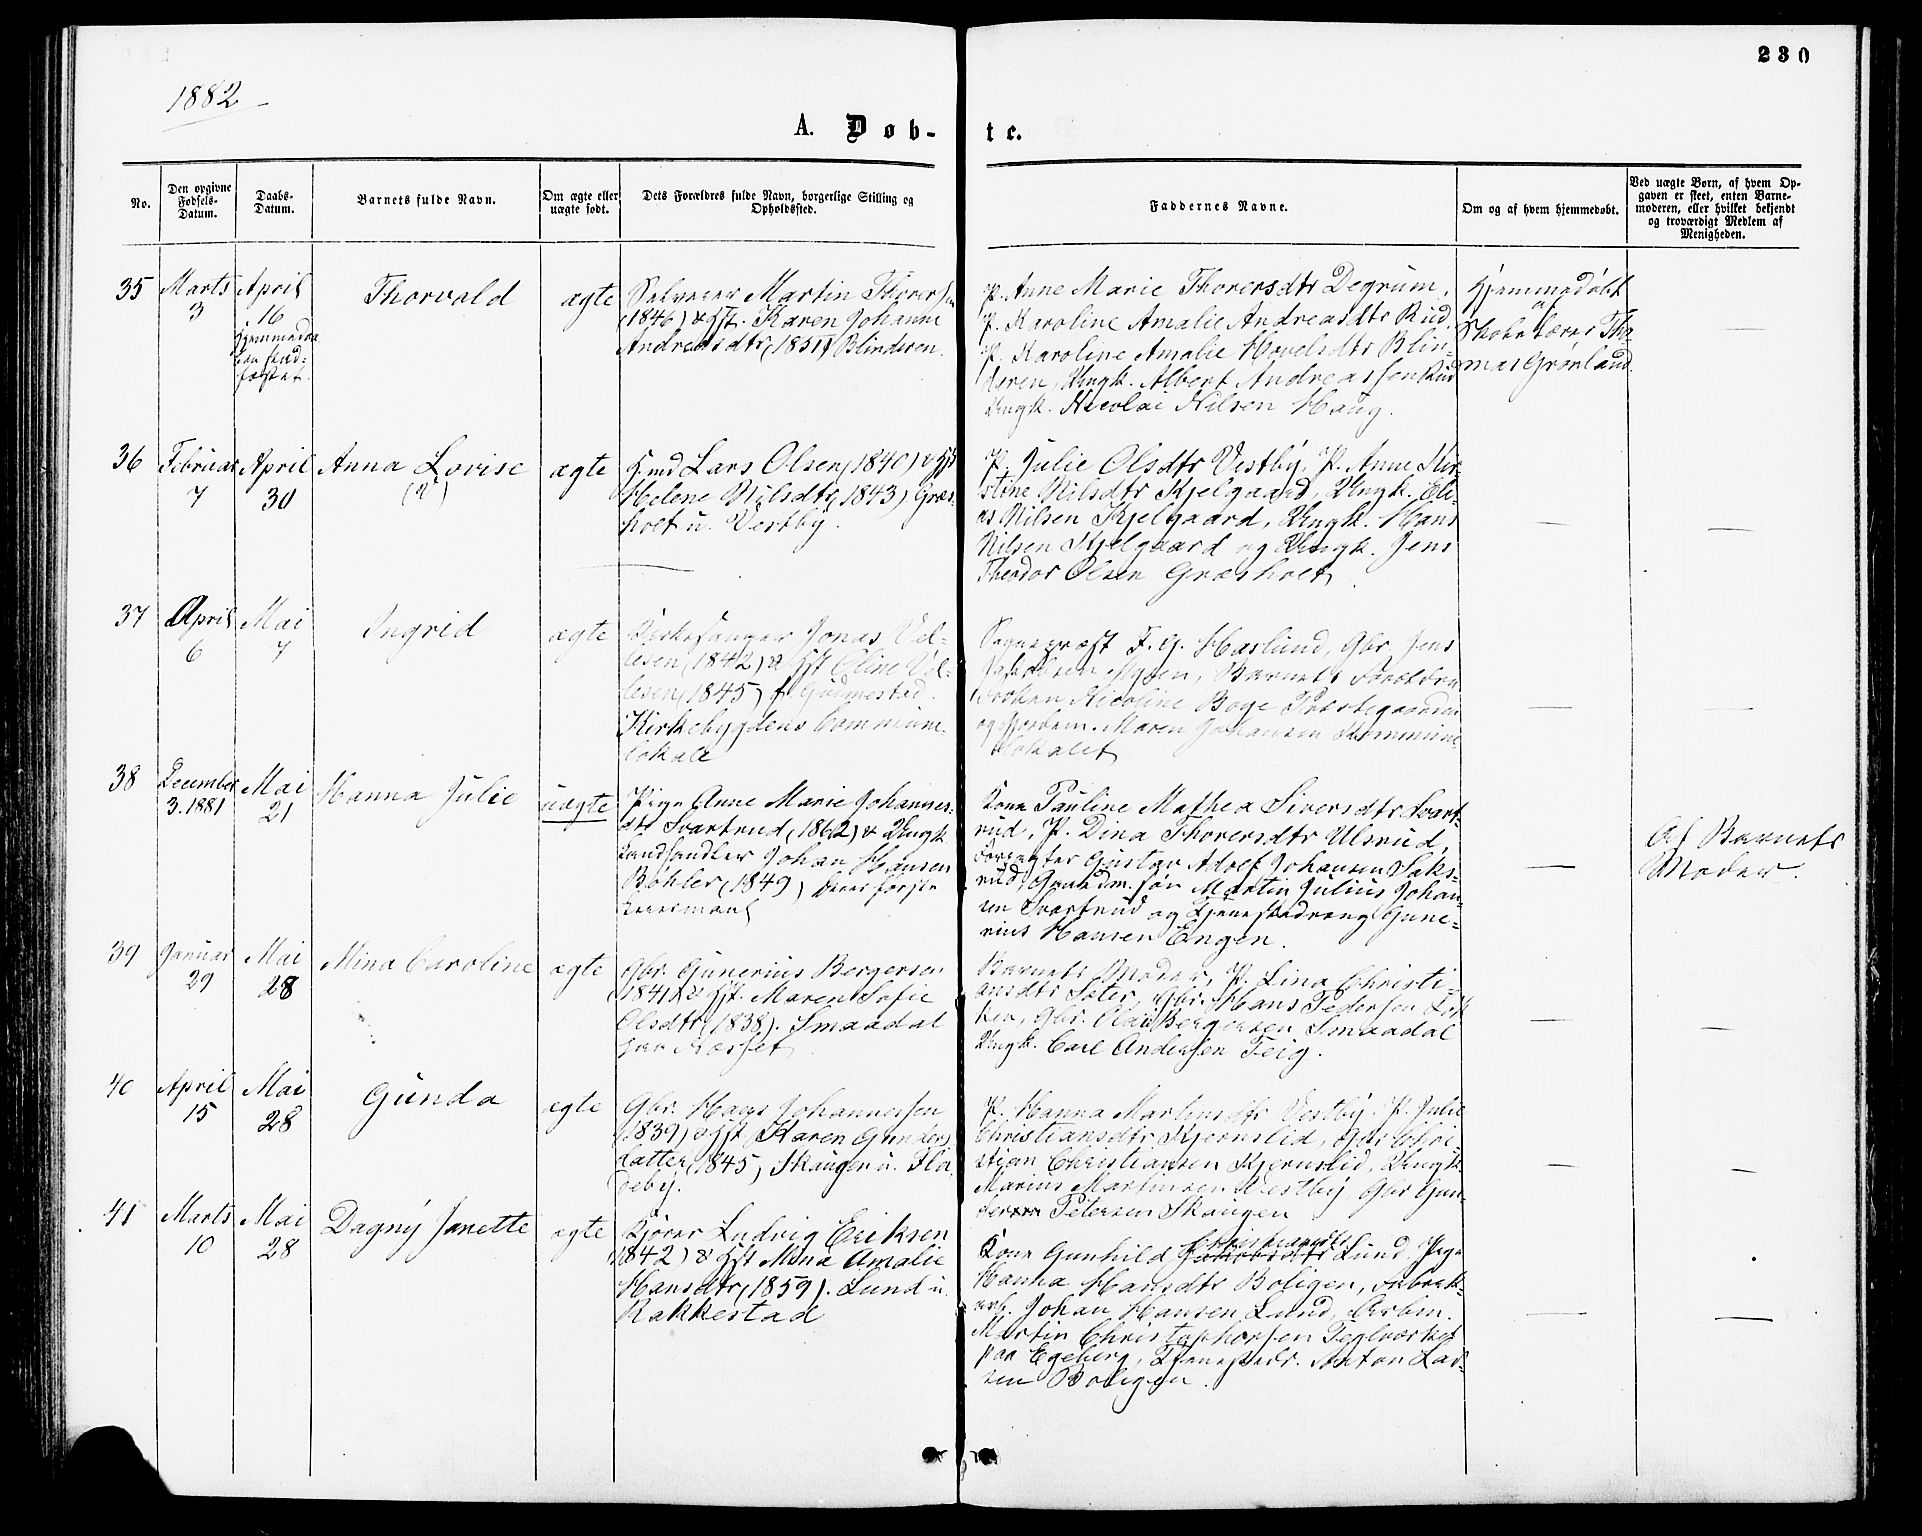 230
1882
A. Døb-
te.
No.
Den opgivne
Fødsels-
Datum.
Daabs-
Datum.
Barnets fulde Navn.
Om ægte eller
uægte født.
Dets Forældres fulde Navn, borgerlige Stilling og
Opholdssted.
Faddernes Navne.
Om og af hvem hjemmedøbt.
Ved uægte Børn, af hvem Op-
gaven er skeet, enten Barne-
moderen, eller hvilket bekjendt
og troværdigt Medlem af
Menigheden.
35
Marts
3
April
16
Thorvold
ægte
Martin Thoresen
(1846) & Hst. Karen Johanne
Andreasdtr (1851) Blinderen.
P. Anne Marie Thorersdtr Degrum,
P. Karoline Amalie Andreasdtr Rud,
P. Karoline Amalie Hovelsdtr Blin-
deren, Ungk. Albert Andreassen Rud
Ungk. Nicolai Nilsen Haug.
Hjemmedøbt
af
Skolelærer Tho-
mas Grønland
36
Februar
7
April
30
Anna Lovise
ægte
Lars Olsen (1840) & Hst
Helene Nilsdtr (1843) Græs-
holt u. Vestby.
P. Julie Olsdtr Vestby, P. Anne Kir-
stine Nilsdtr Kjelgaard, Ungk. Eli-
as Nilsen Kjelgaard, Ungk. Hans
Nilsen Kjelgaard og Ungk. Jens
Theodor Olsen Græsholt
37
April
6
Mai
7
Ingrid
ægte
Kirkesanger Jonas Vel-
lesen (1842) & Hst Eline Vel-
lesen (1845) f. Gudmestad.
Kirkebygdens Commune-
lokale
Sogneprest F. G. Haslund, Gbr. Jens
Jakobsen Mysen, Barnets Forældre
Frøken Nicoline Boye Præstegaarden
og Maren Johansen Kommune
lokalet
38
December
3. 1881
Mai
21
Hanna Julie
uægte
Pige Anne Marie Johannes-
dtr Svartrud (1862) & Ungk.
Landhandler Johan Hansen
Bøhler (1849) begges første
Leiermaal
Kone Pauline Mathea Siversdtr Svart-
rud, P. Dina Thorersdtr Ulsrud,
Forpagter Gustav Adolf Johansen Saks-
rud, Gaardm. søn Martin Julius Johan-
sen Svartrud og Tjenestedreng Gune-
rius Hansen Engen.
Af Barnets
Moder.
39
Januar
29
Mai
28
Mina Caroline
ægte
Gbr. Gunerius Bergersen
(1841) & Hst. Maren Sofie
Olsdtr (1838). Smaadal
Barnets Moder, P. Lina Christi-
ansdtr Sæter, Gbr. Hans Pedersen Løk-
ken, Gbr. Olai Bergersen Smaadal
Ungk. Carl Andersen Teig.
40
April
15
Mai
28
Gunda
ægte
Gbr. Hans Johannessen
(1839) & Hst Karen Gunders-
datter (1845) Skaugen u. Flø-
deby.
P. Hanna Martinsdtr Vestby. P. Julie
Christiansdtr Kjernslid, Gbr Chri-
stian Christiansen Kjernslid, Ungk.
Marius Martinsen Vestby, Gbr Gun-
der Petersen Skaugen
41
Marts
10
Mai
28
Dagny Janette
ægte
Kjører Ludvig Eriksen
(1842) & Hst Mina Amalie
Hansdtr (1859). Lund u.
Rakkestad
Kone Gunhild Lund, Pige
Hanna Hansdtr Boligen, Fabrik-
arb. Johan Hansen Lund, Arbm.
Martin Christophersen Teglverket
paa Egeberg, Tjenestedr. Anton Lar-
sen Boligen.